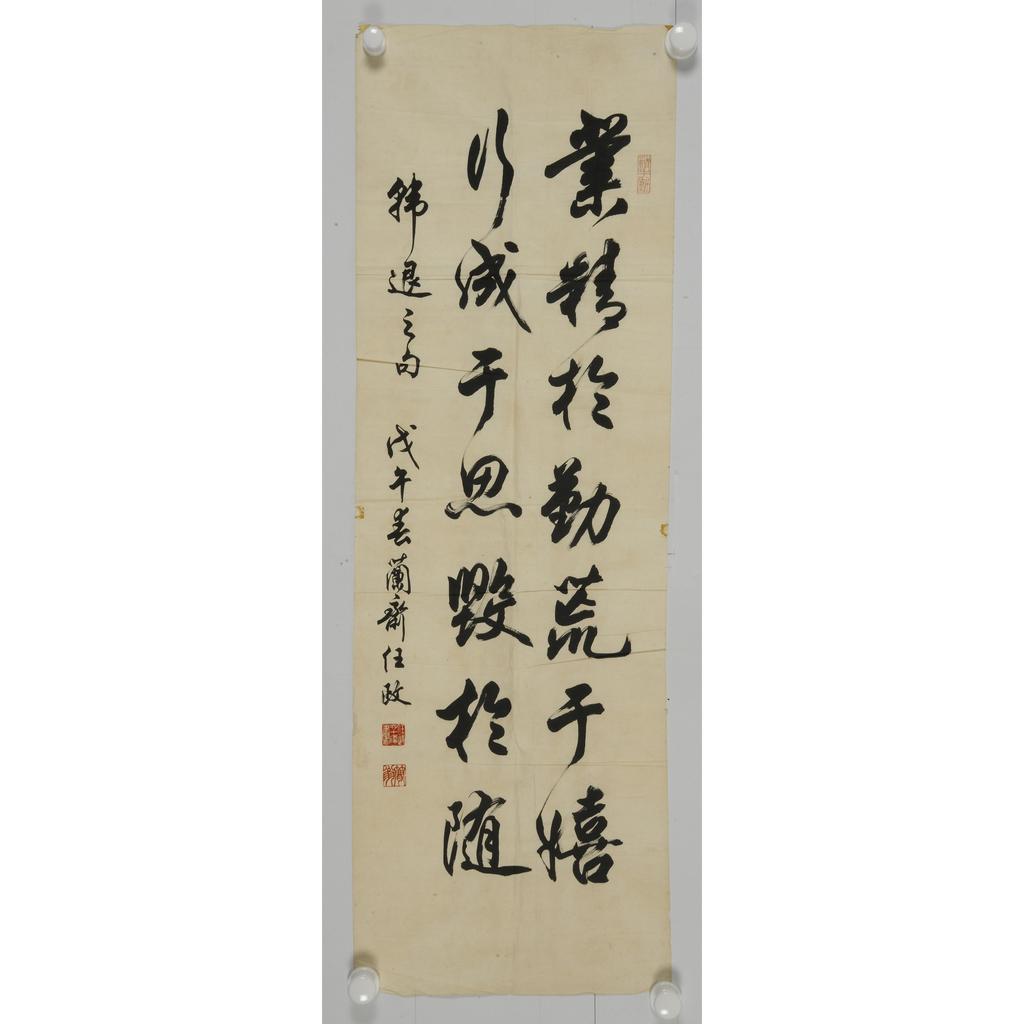 業精於勤荒于嬉
行成于思毀於随
韩退之句 戊午春蘭齋任政